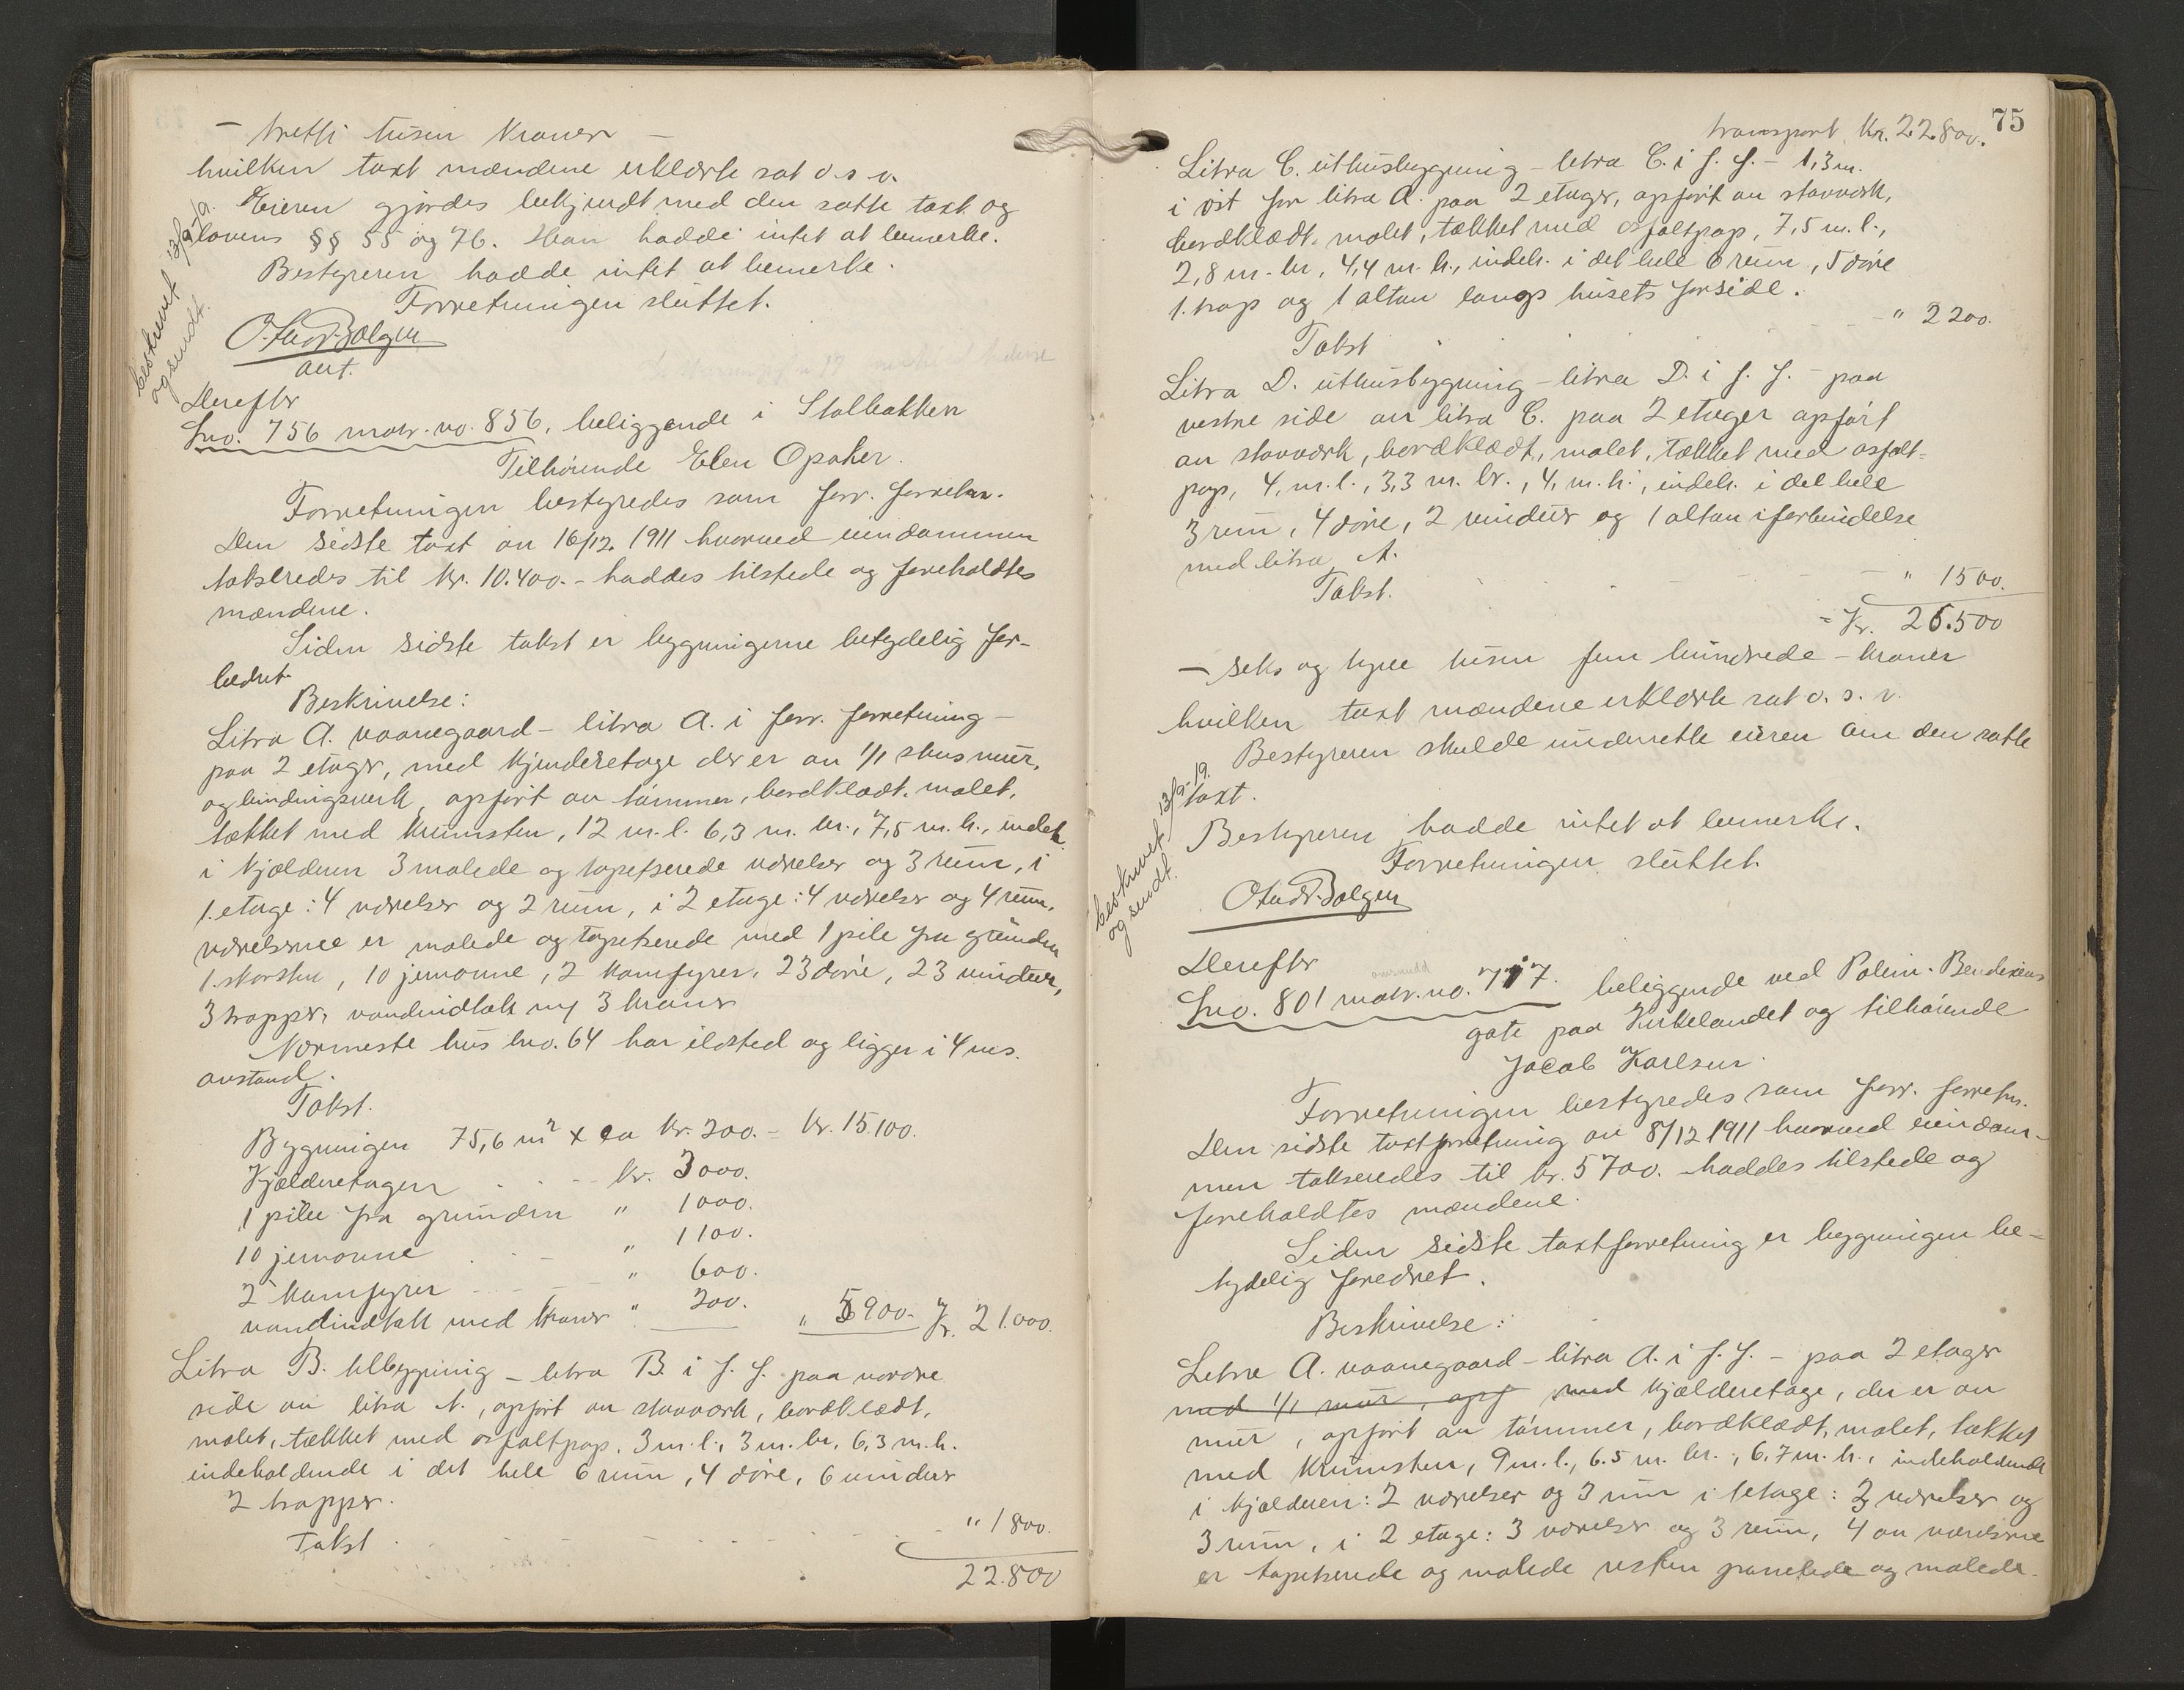 - tretti tusen kroner -
hvilken taxt mændene erklærte sat o. s. v.
Eieren gjordes bekjendt med den satte taxt og
lovens §§ 55 og 76. Han hadde intet at bemerke.
Bestyreren hadde intet at bemerke.
Forretningen sluttet.
beskrevet 13/9-19.
og sendt.
aut.
Derefter
Lno. 756 matr. no. 856, beliggende i Stalbakken
Tilhørende Elen Opaker.
Forretningen bestyredes som forr. forretn.
Den sidste taxt av 16/12. 1911 hvorved eiendommen
takseredes til kr. 10.400.- haddes tilstede og foreholdtes
mændene.
Siden sidste takst er bygningerne betydelig for-
bedret.
Beskrivelse:
Litra A. vaanegaard - litra A. i forr. forretning -
paa 2 etager, med kjelderetage der er av 1/1 stens mur,
og bindingsverk, opført av tømmer, bordklædt, malet,
tækket med krumsten, 12 m. l. 6,3 m. br., 7,5 m. h., indeh.
i kjælderen 3 malede og tapetserede værelser og 3 rum, i
1. etage: 4 værelser og 2 rum, i 2 etage: 4 værelser og 4 rum,
værelserne er malede og tapetserede med 1 pile fra grunden
1 skorsten, 10 jernovne, 2 komfyrer, 23 døre, 23 vinduer,
3 trapper, vandindtak m/ 3 kraner
Nærmeste hus lno. 64 har ildsted og ligger i 4 ms.
avstand.
Takst.
Bygningen 75,6 m² x ca kr. 200.- = kr. 15.100.
Kjælderetagen . . - kr. 3000.
1 pile fra grunden " 1000.
10 jernovne . . - " 1100.
2 komfyrer - - - " 600.
vandindtak med kraner " 200. " 5900.- Kr. 21.000.
Litra B. tilbygning - litra B. i f. f. paa nordre
side av litra A., opført av stavverk, bordklædt,
malet, tækket med asfaltpap, 3 m. l., 3 m. br., 6,3 m. h.
indeholdende i det hele 6 rum, 4 døre, 6 vinduer
2 trapper.
Takst . - - - - " 1800.
22.800
75
transport Kr. 22.800.
Litra C. uthusbygning - litra C. i f. f. - 1,3 m.
i øst for litra A. paa 2 etager, opført av stavverk,
bordklædt, malet, tækket med asfaltpap, 7,5 m. l.,
2,8 m. br., 4,4 m. h., indeh. i det hele 6 rum, 5 døre
1 trap og 1 altan langs husets forside.
Takst - - " 2200.
Litra D. uthusbygning - litra D. i f. f. - paa
vestre side av litra C. paa 2 etager opført
av stavverk, bordklædt, malet, tækket med asfalt-
pap, 4, m. l., 3,3 m. br., 4, m. h., indeh. i det hele
3 rum, 4 døre, 2 vinduer og 1 altan i forbindelse
med litra A.
Takst. - - - " 1500.
= Kr. 26.500
- seks og tyve tusen fem hundrede - kroner
hvilken taxt mændene erklærte sat o. s. v.
Bestyreren skulde underrette eieren om den satte
taxt.
Bestyreren hadde intet at bemerke.
Forretningen sluttet.
beskrevet 13/9-19.
og sendt.
Derefter
Lno. 801 matr. no. 717. beliggende ved Palin. Bendixens
gate paa Kirkelandet og tilhørende
Jacob Karlsen.
Forretningen bestyredes som forr. forretn.
Den sidste taxtforretning av 8/12 1911 hvorved eiendom-
men takseredes til kr. 5700. haddes tilstede og
foreholdtes mændene.
Siden sidste taxtforretning er bygningen be-
tydelig foredret.
Beskrivelse:
Litra A. vaanegaard - litra A. i f. f. - paa 2 etager
med 1/1 mur, opf med kjælderetage, der er av
mur, opført av tømmer, bordklædt, malet, tækket
med krumsten, 9 m. l., 6.5 m. br., 6,7 m. h., indeholdende
i kjælderen: 2 værelser og 3 rum i 1 etage: 3 værelser og
3 rum, i 2 etage: 3 værelser og 3 rum, 4 av værelserne
er tapetserede og malede resten panelede og malede.